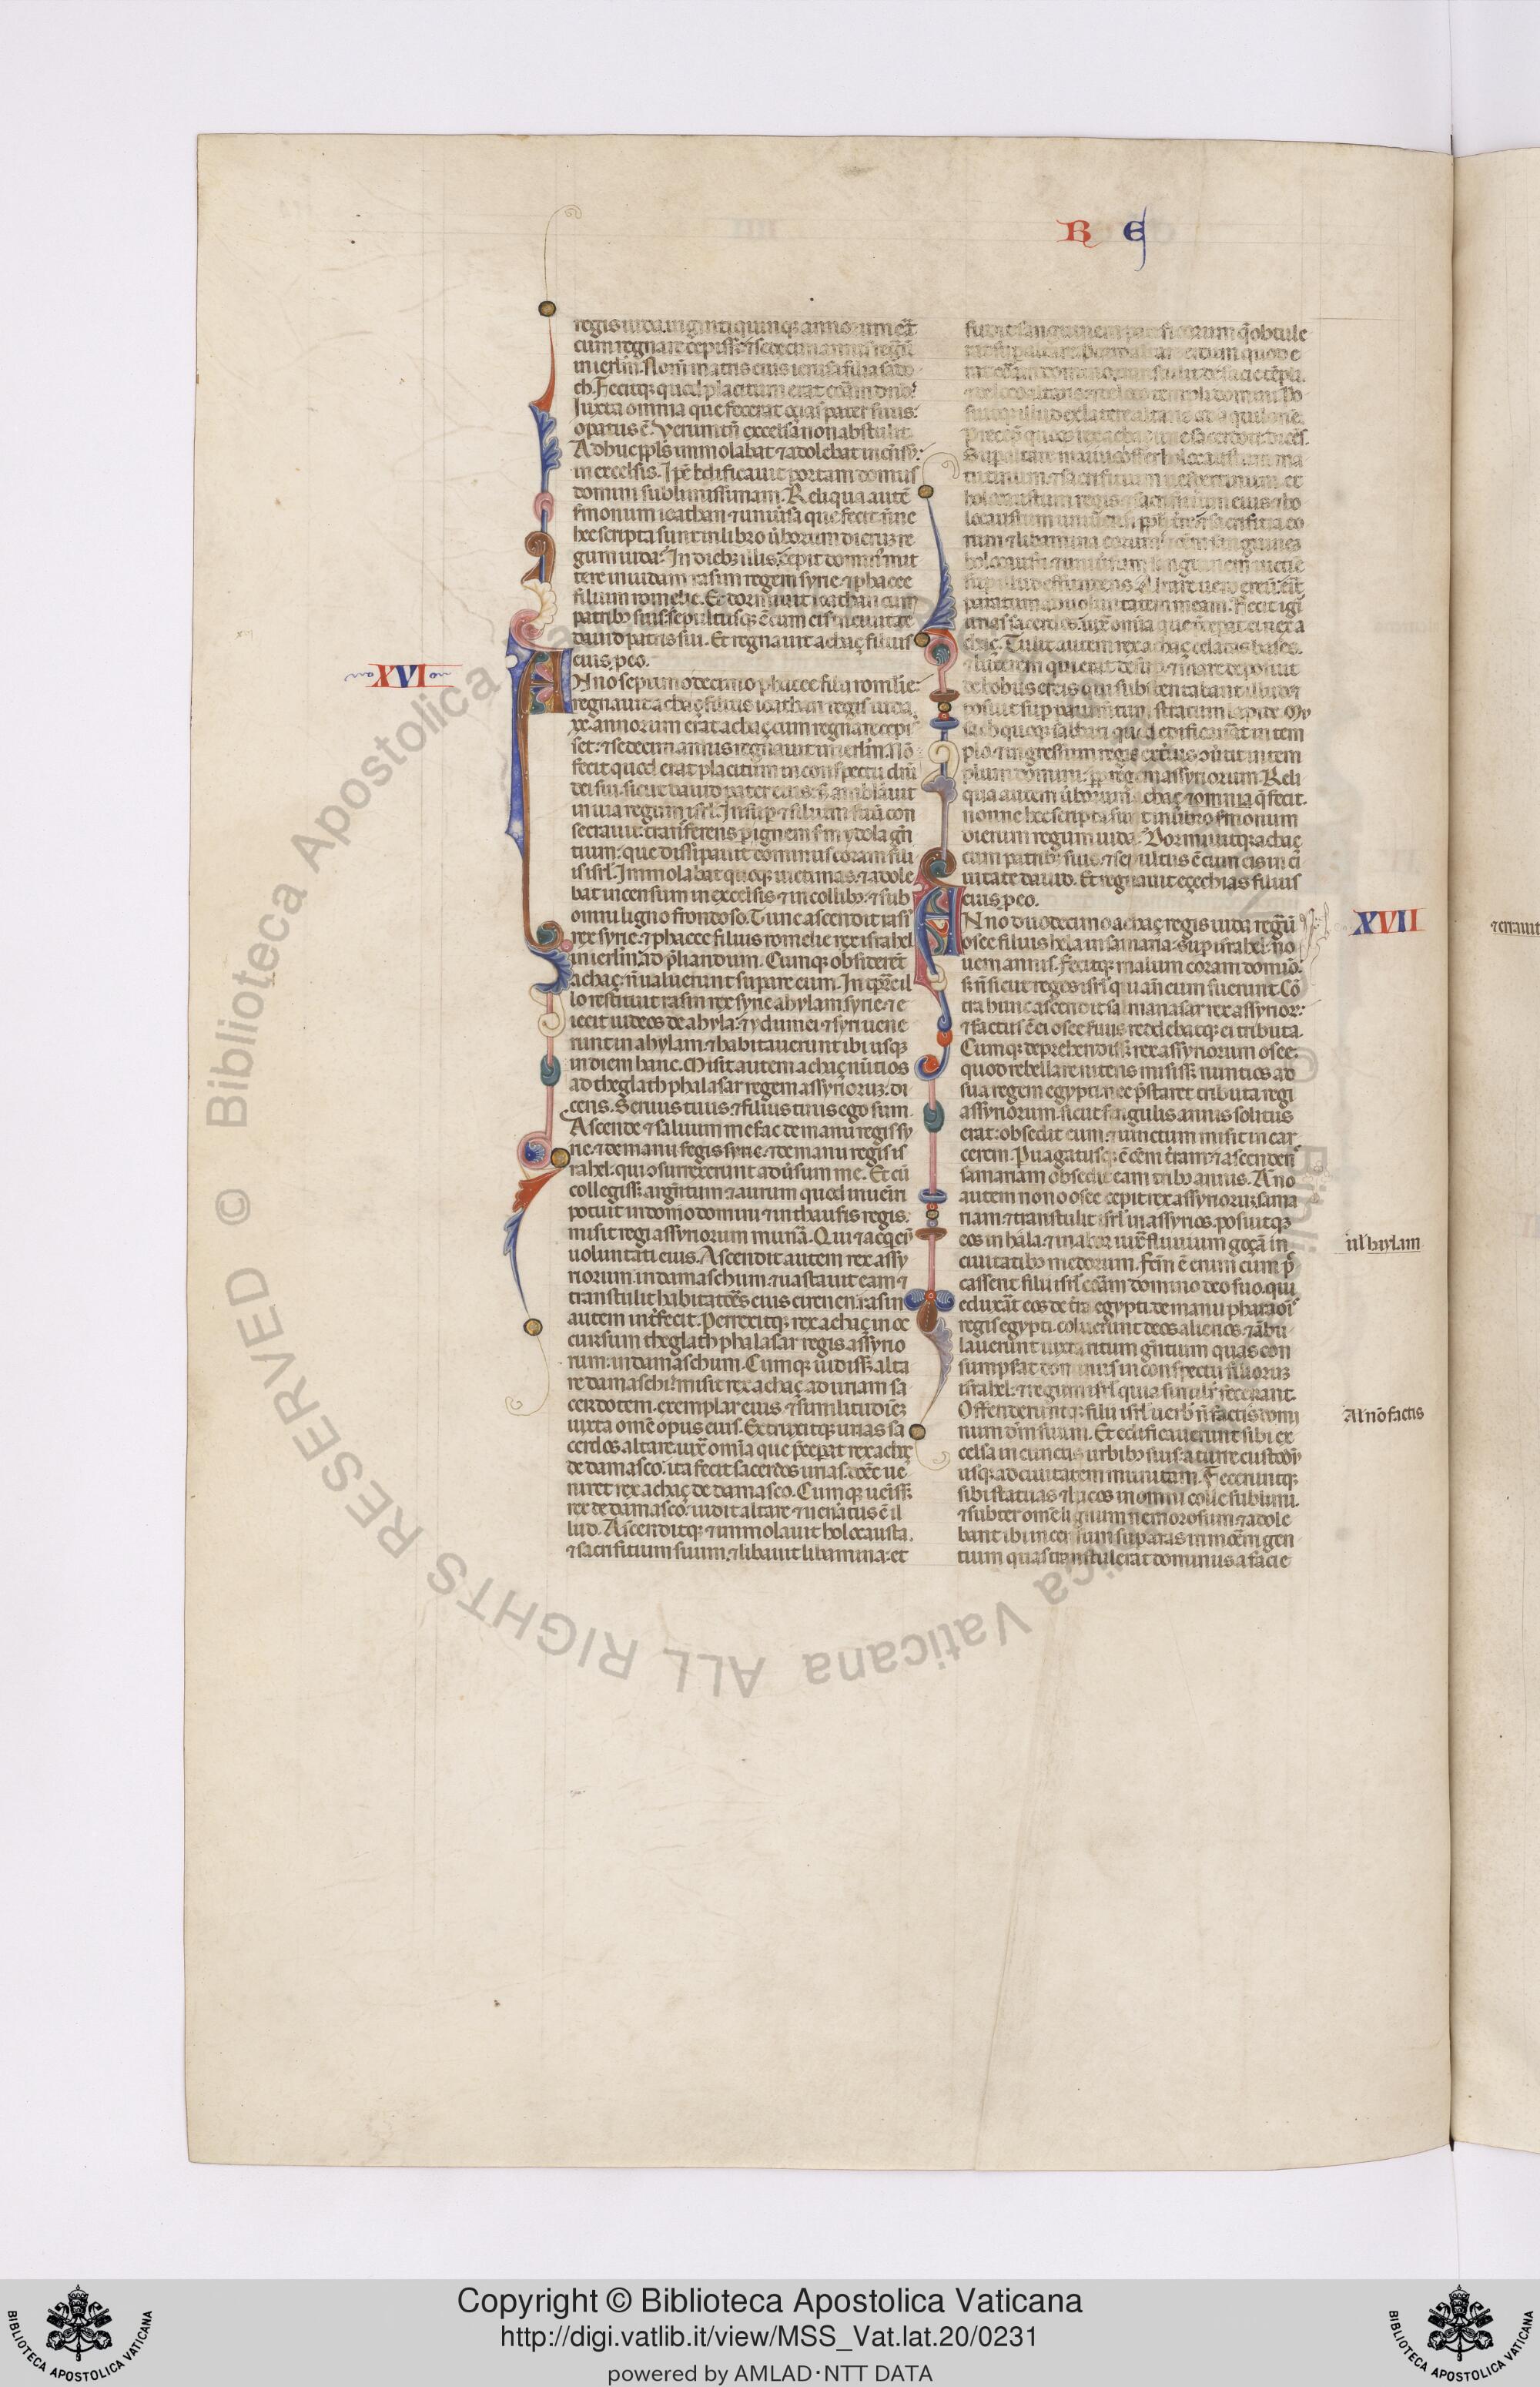 R E
regis iuda. uiginti quinqz annorum erat
cum regnare cepisset. et sedecim annis regn̄
in ierl̄m. Nom̄ matris eius ierusa filia sado
ch. Fecitqz quod placitum erat corā dn̄o.
Juxta omnia que fecerat ozias pater suus:
opatus ē. Verumtn̄ excelsa non abstulit.
Adhuc ppl̄s immolabat ⁊ adolebat incensū
in excelsis. Ip̄e edificauit portam domus
domini sublimissimam. Reliqua autē
sermonum ioathan ⁊ uniūsa que fecit n̄ne
hec scripta sunt in libro ūborum dierū re
gum iuda. In diebz illis cepit dominus mit
tere in iudam rasin regem syrie. ⁊ phacee
filium romelie. Et dormiuit ioathan cum
patribz suis. sepultusqz ē cum eis in ciuitate
dauid patris sui. Et regnauit achaz filius
eius p eo.
XVI
ANno septimodecimo phacee filii romelie:
regnauit achaz filius ioathan regis iuda.
xx. annorum erat achaz cum regnare cepis
set: ⁊ sedecim annis regnauit in ierl̄m. Nō
fecit quod erat placitum in conspectu dn̄i
dei sui. sicut dauid pater eius: s; ambulauit
in uia regum isrl̄. Insup ⁊ filium suū con
secrauit: transferens p ignem sm̄ ydola gn̄
tium: que dissipauit dominus coram filii
is isrl̄. Immolabat quoqz uictimas. ⁊ adole
bat incensum in excelsis ⁊ in collibz. ⁊ sub
omni ligno frondoso. Tunc ascendit rasī
rex syrie. ⁊ phacee filius romelie rex israhel
in ierl̄m ad p̄liandum. Cumqz obsiderēt
achaz: n̄ ualuerunt supare eum. In tpr̄e il
lo restituit rasin rex syrie ahylam syrie. ⁊ e
iecit iudeos de ahyla: ⁊ ydumei ⁊ syri uene
runt in ahylam. ⁊ habitauerunt ibi usqz
in diem hanc. Misit autem achaz nūtios
ad theglath phalasar regem assyriorū: di
cens. Seruus tuus. ⁊ filius tuus ego sum.
Ascende ⁊ saluum me fac de manu regis sy
rie. ⁊ de manu regis syrie. ⁊ de manu regis is
rahel. qui ↄsurrexerunt aduersum me. Et cū
collegisset argentum ⁊ aurum quod inueiri
potuit in domo domini ⁊ in thausis regis.
misit regi assyriorum munā. Qui ⁊ acqeuit
uoluntati eius. Ascendit autem rex assy
riorum in damaschum. ⁊ uastauit eam ⁊
transtulit habitatores eius cirenen. rasin
autem int̄fecit. Perrexitqz rex achaz in oc
cursum theglath phalasar regis assyrio
rum: in damaschum. Cumqz uidisset alta
re damaschi: misit rex achaz ad uriam sa
cerdotem. exemplar eius ⁊ similitudīez
iuxta omē opus eius. Extruxitqz urias sa
cerdos altare. iux̄ omīa que p̄cepat rex achaz
de damasco. ita fecit sacerdos urias. donec ue
niret rex achaz de damasco. Cumqz uenisset
rex de damasco: uidit altare ⁊ uenatus ē il
lud. Ascenditqz ⁊ immolauit holocausta.
⁊ sacrifitium suum. ⁊ libauit libamina. et
fudit sanguinem pacificorum q̄ obtule
rat sup altare. Porro altare ereum quod e
rat corā domino. transtulit de facie tēpli.
⁊ de loco altaris. ⁊ de loco templi domini. Po
suitqz illud ex latere altaris ad aquilonē.
Precepit quoqz rex achaz urie sacerdoti dicēs.
Sup altare maius offer holocaustum ma
tutinum. ⁊ sacrifitium uespertinum. et
holocaustum regis. ⁊ sacrifitium eius. ⁊ ho
locaustum uniūsi ppl̄i t̄re. ⁊ sacrifitia eo
rum ⁊ libamina eorum. ⁊ omēm sanguinez
holocausti. ⁊ uniūsum sanguinem uictie
sup illud effundens. Altare uero ereū. erit
paratum ad uoluntatem meam. Fecit igit̄
urias sacerdos. iux̄ omīa que p̄cepat ei rex a
chaz. Tulit autem rex achaz celatas bases.
⁊ luterem qui erat desup. ⁊ mare deposuit
de bobus ereis qui substentabant illud. ⁊
posuit sup pauim̄tum stratum lapide. Mu
sach quoqz sabbati quod edificauāt in tem
plo. ⁊ ingressum regis ext̄ius ↄūtit in tem
plum domini: pp regem assyriorum. Reli
qua autem ūborum achaz. ⁊ omnia q̄ fecit.
nonne hec scripta sunt in libro sermonum
dierum regum iuda. Dormiuitqz achaz
cum patribz suis. ⁊ sepultus ē cum eis in ci
uitate dauid. Et regnauit ezechias filius
eius p eo.
XVII
ANno duodecimo achaz regis iuda regn̄
osee filius hela in samaria. sup israhel. no
uem annis. Fecitqz malum coram domīo.
s; n̄ sicut reges isrl̄ qui an̄ eum fuerunt. Cō
tra hunc ascendit salmanasar rex assyrior̄:
⁊ factus ē ei osee s̄uus. reddebatqz ei tributa.
Cumqz deprehendisset rex assyriorum osee:
quod rebellare nitens misisset nuntios ad
sua regem egypti. nec p̄staret tributa regi
assyriorum. sicut singulis annis solitus
erat: obsedit eum. ⁊ uinctum misit in car
cerem. Puagatusqz ē omēm t̄ram. ⁊ ascendens
samariam obsedit eam tribz annis. Anno
autem nono osee cepit rex assyriorū sama
riam. ⁊ transtulit isrl̄ in assyrios. posuitqz
eos in hala. ⁊ in abor iux̄ fluuium gozā in
ciuitatibz medorum. Fctm̄ ē enim cum pec
cassent filii isrl̄ corā domino deo suo. qui
eduxāt eos de t̄ra egypti. de manu pharaoīs
regis egypti. coluerunt deos alienos. ⁊ ābu
lauerunt iuxta ritum gn̄tium quas con
sumpsat dominus in conspectu filiorū
israhel. ⁊ regum isrl̄ quia similit̄ fecerant.
Offenderuntqz filii isrl̄ uerb̄ n̄ factis domi
num dm̄ suum. Et edificauerunt sibi ex
celsa in cunctis urbibz suis. a turre custodū
usqz ad ciuitatem munitam. Feceruntqz
sibi statuas ⁊ lucos in omni colle sublimi.
⁊ subter omē lignum nemorosum. ⁊ adole
bant ibi incensum sup aras in morem gen
tium quas transtulerat dominus a facie
ul̄ huylam
Al nō factis
Copyright © Biblioteca Apostolica Vaticana
http://digi.vatlib.it/view/MSS_Vat.lat.20/0231
powered by AMLAD·NTT DATA
BIBLIOTECA APOSTOLICA VATICANA
BIBLIOTECA APOSTOLICA VATICANA
© Biblioteca Apostolica Vaticana ALL RIGHTS RESERVED